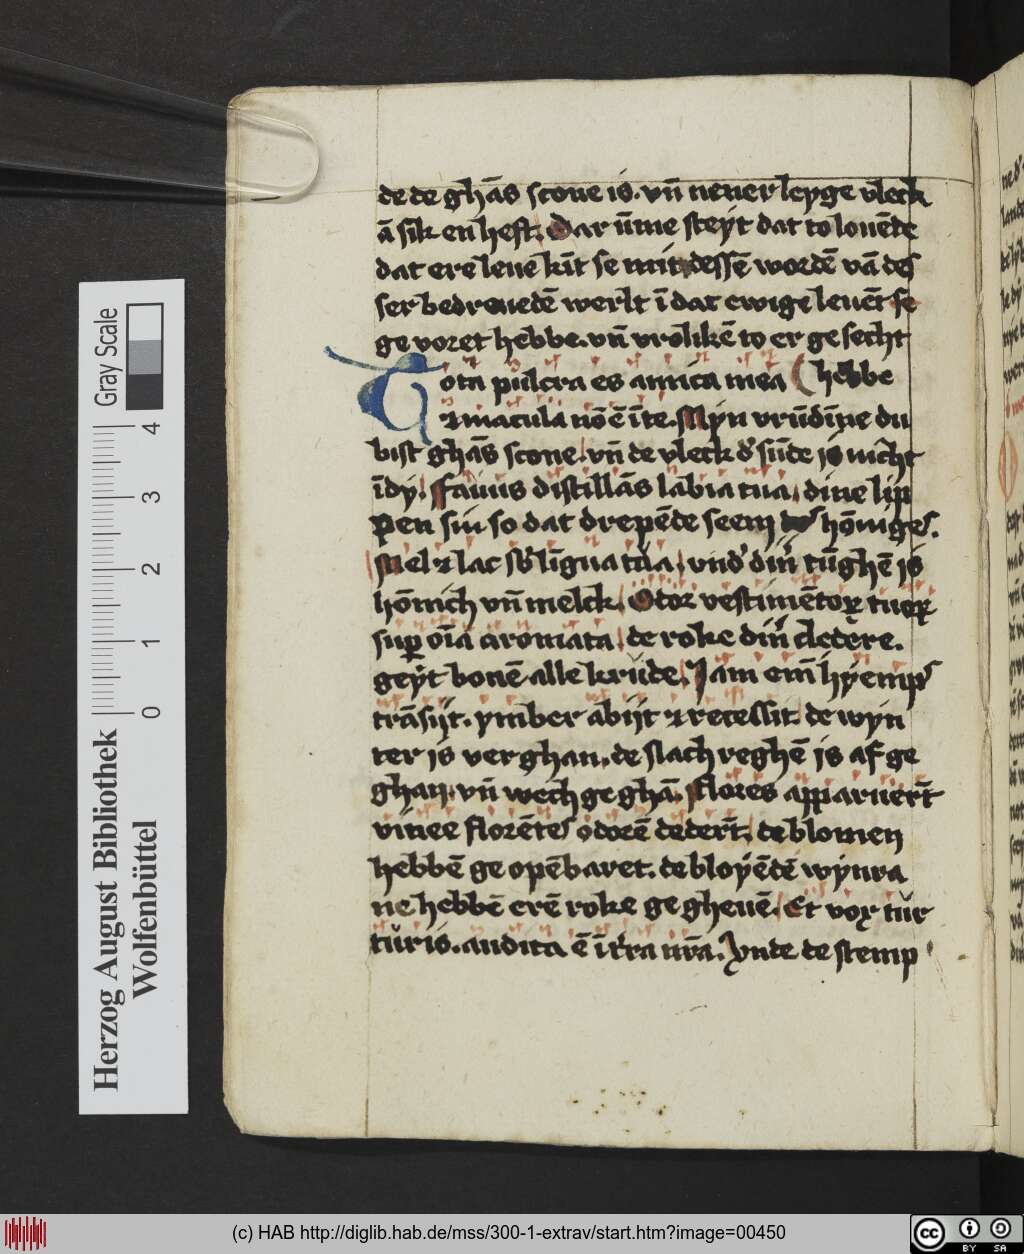 de de ghās scone is. vn̄ neuerleyge vleck
ā sik en heft. Dar v̄me steyt dat to louēde
dat ere leue kīt se mit dessē wordē vā des
ser bedrouedē werlt ī dat ewige leuēt
ge voret hebbe. vn̄ vrolikē to er ge secht
Tota pulcra es amica mea hebbe
⁊ macula nō ē ī te. Myn vrūdīne du
bist ghās scone. vn̄ de vleck d' sūde is nicht
ī dy. ffauus distillās labia tua. dine lip
pen sin so dat drepēde seem hōniges.
Mel ⁊ lac sb' līgua tua. vnd' din' tūghē is
hōnich vn̄ melck. Odor vestimētoꝝ tuoꝝ
suꝑ oīa aromata. de roke din' cledere.
geyt bouē alle krude. Jam em̄ hyemps
trāsijt. ymber abijt ⁊ recessit. de wyn
ter is verghan. de slach reghē is af ge
ghan. vn̄ wech ge ghā. fflores apparuerūt
vinee florētes odorē dederūt. de blomen
hebbē ge opēbaret. de bloyēdē wynra
ne hebbē erē roke ge gheuē. Et vox tur
turis. audita ē ī t'ra nr̄a. Vnde de stemp
Herzog August Bibliothek
Wolfenbüttel
Gray Scale
0 1 2 3 4
(c) HAB http://diglib.hab.de/mss/300-1-extrav/start.htm?image=00450
cc BY SA